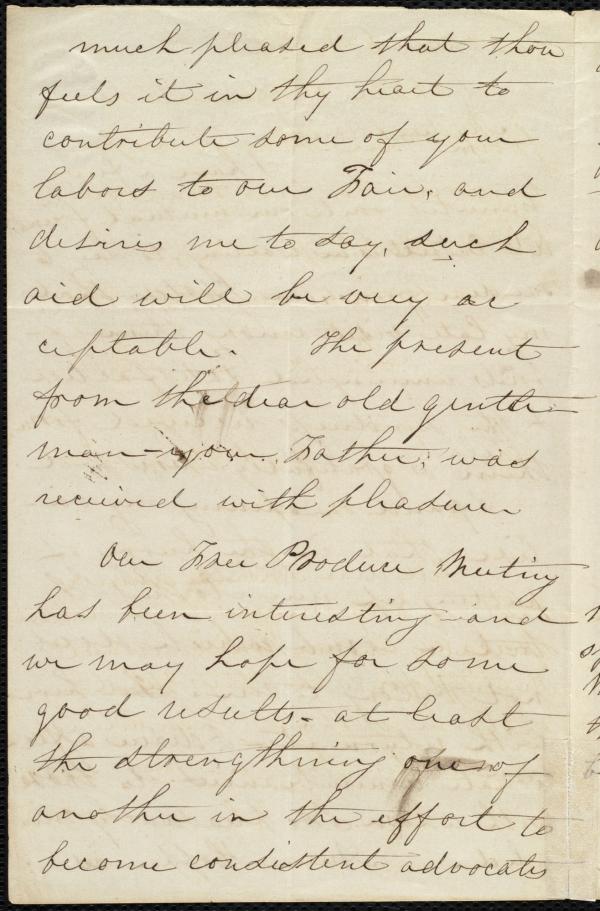 much pleased that thou
feels it in thy heart to
contribute some of your
labors to our Fair, and
desires me to say, such
aid will be very ac
ceptable. The present
from the dear old gentle-
man - your Father, was
received with pleasure
Our Free Produce Meeting
has been interesting and
we may hope for some
good results - at least
the strengthning one of
another in the effort to
become consistent advocates